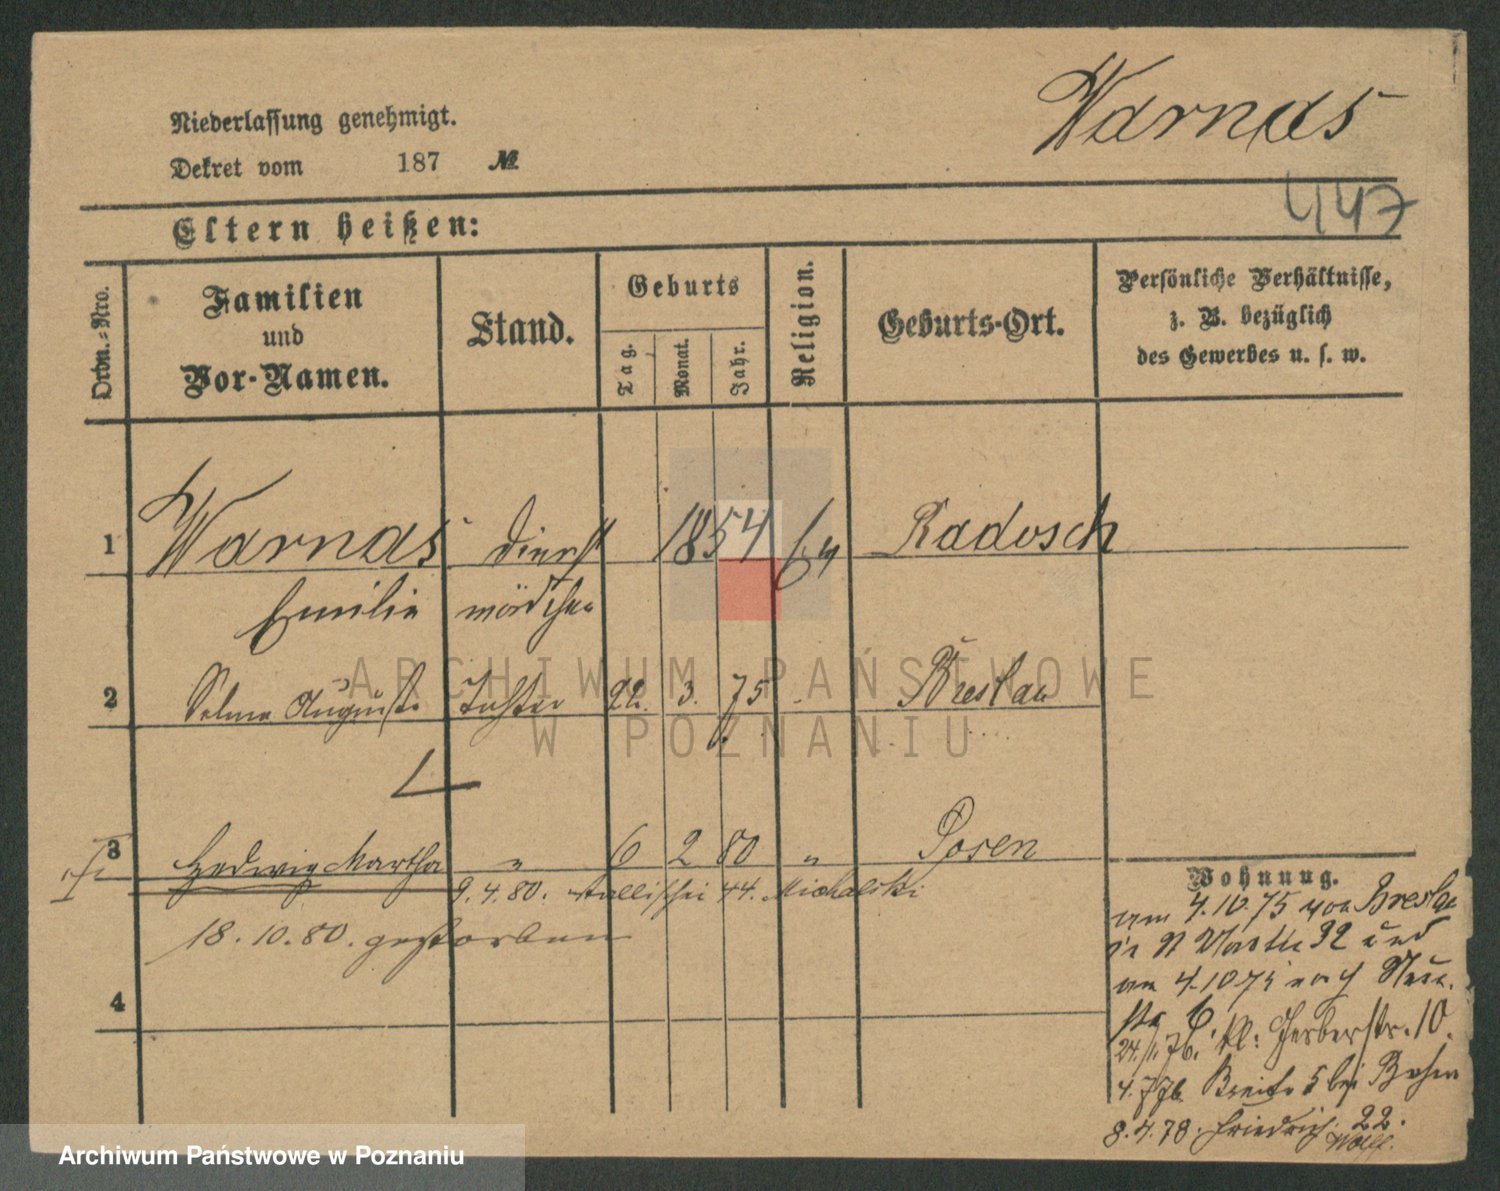 Warnas
Niederlassung genehmigt.
Dekret vom 187 №
447
Eltern heißen:
Ordn.-Nro.
Familien
und
Vor-Namen.
Stand.
Geburts
Tag.
Monat.
Jahr.
Religion.
Geburts-Ort.
Persönliche Verhältnisse,
z. B. bezüglich
des Gewerbes u. s. w.
1 Warnas Dienst 1854 Radosch
Emilie mädchen
2 Selma Auguste Tochter 22. 3. 75 Breslau
ARCHIWUM PAŃSTWOWE
W POZNANIU
3 Hedwig Martha " 6 2 80 " Posen
9. 4. 80. Wallischei 44. Michalski
18. 10. 80. gestorben
4
Wohnung.
am 4.10.75 von Breslau
92 und
am 4.10.75 nach Neue
str 6
24. 76. kl: Gerberstr. 10.
4. 7 76. Breite 5 bei
8. 4. 78. Friedrich. 22.
Archiwum Państwowe w Poznaniu